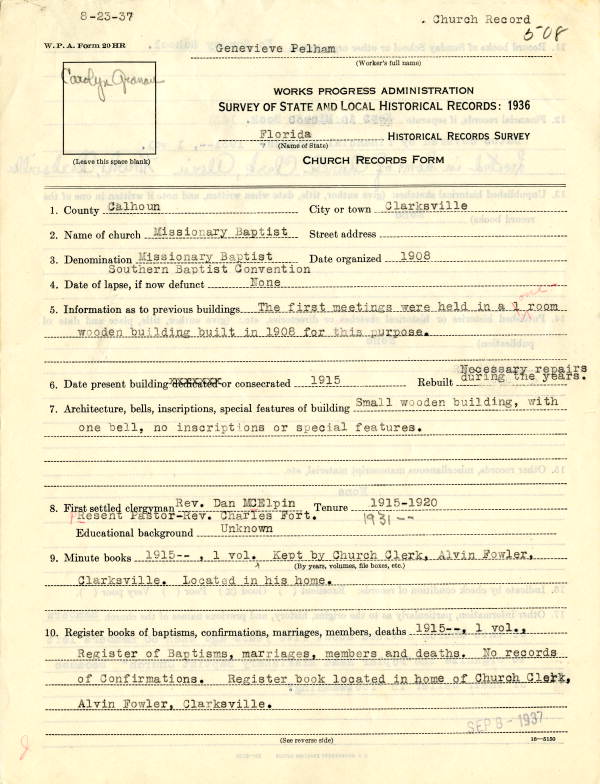 8-23-37
. Church Record
508
W. P. A. Form 20 HR
Genevieve Pelham
(Worker's full name)
WORKS PROGRESS ADMINISTRATION
SURVEY OF STATE AND LOCAL HISTORICAL RECORDS: 1936
Florida HISTORICAL RECORDS SURVEY
(Name of State)
(Leave this space blank)
CHURCH RECORDS FORM
1. County Calhoun City or town Clarksville
2. Name of church Missionary Baptist Street address
3. Denomination Missionary Baptist Date organized 1908
Southern Baptist Convention
4. Date of lapse, if now defunct None
5. Information as to previous buildings The first meetings were held in a 1 room
one
wooden building built in 1908 for this purpose.
6. Date present building dedicated or consecrated 1915 Rebuilt Necessary repairs
during the years.
7. Architecture, bells, inscriptions, special features of building Small wooden building, with
one bell, no inscriptions or special features.
8. First settled clergyman Rev. Dan McElpin Tenure 1915-1920
Present Pastor-Rev. Charles Fort. 1931--
Educational background Unknown
9. Minute books 1915-- , 1 vol. Kept by Church Clerk, Alvin Fowler,
(By years, volumes, file boxes, etc.)
Clarksville. Located in his home.
10. Register books of baptisms, confirmations, marriages, members, deaths 1915--, 1 vol.,
Register of Baptisms, marriages, members and deaths. No records
of Confirmations. Register book located in home of Church Clerk,
Alvin Fowler, Clarksville.
SEP 8 - 1937
(See reverse side)
16—5150